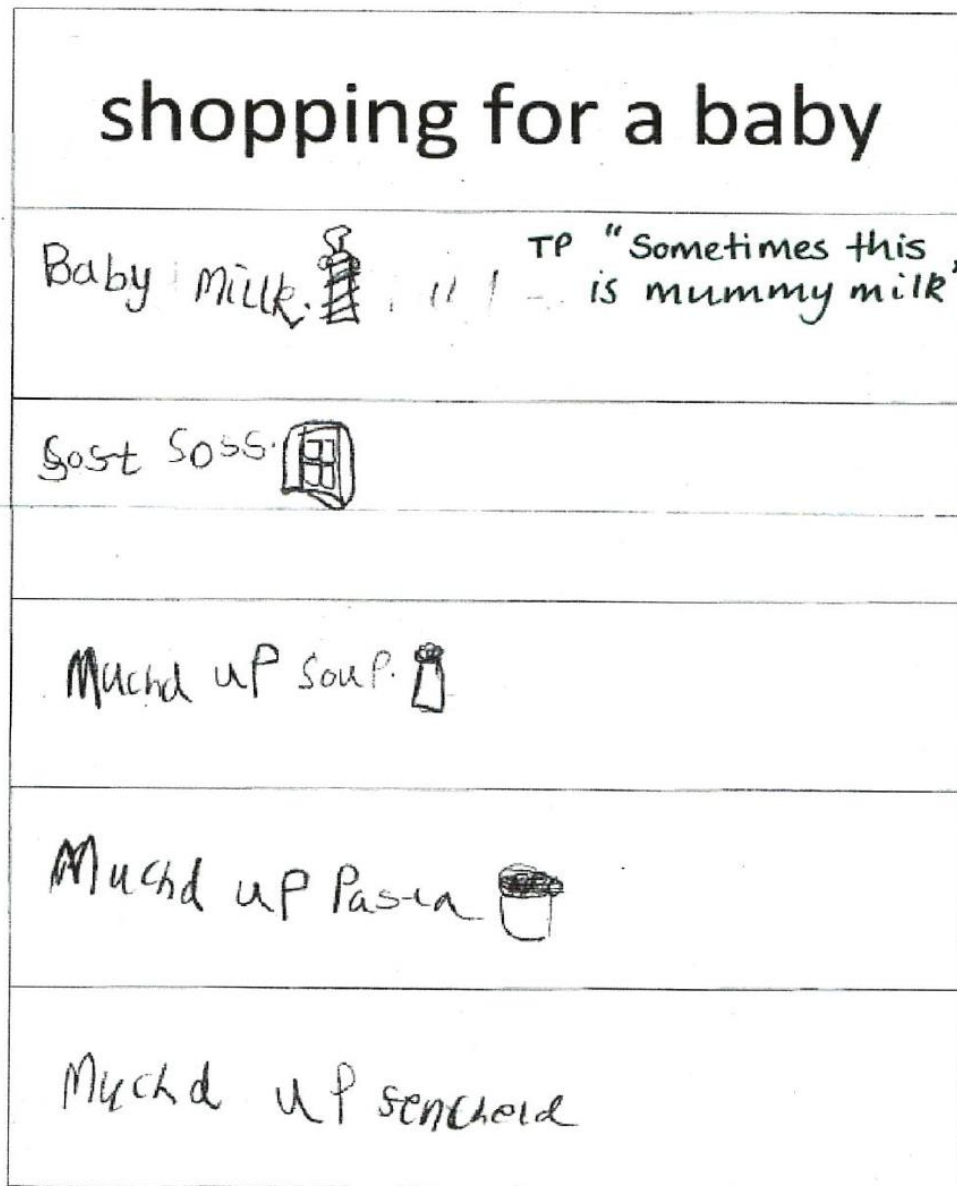 shopping for a baby
Baby Millk.
TP "Sometimes this
is mummy milk"
Sost Soss.
Muchd up soup.
Muchd up Pasta
Muchd up senchold